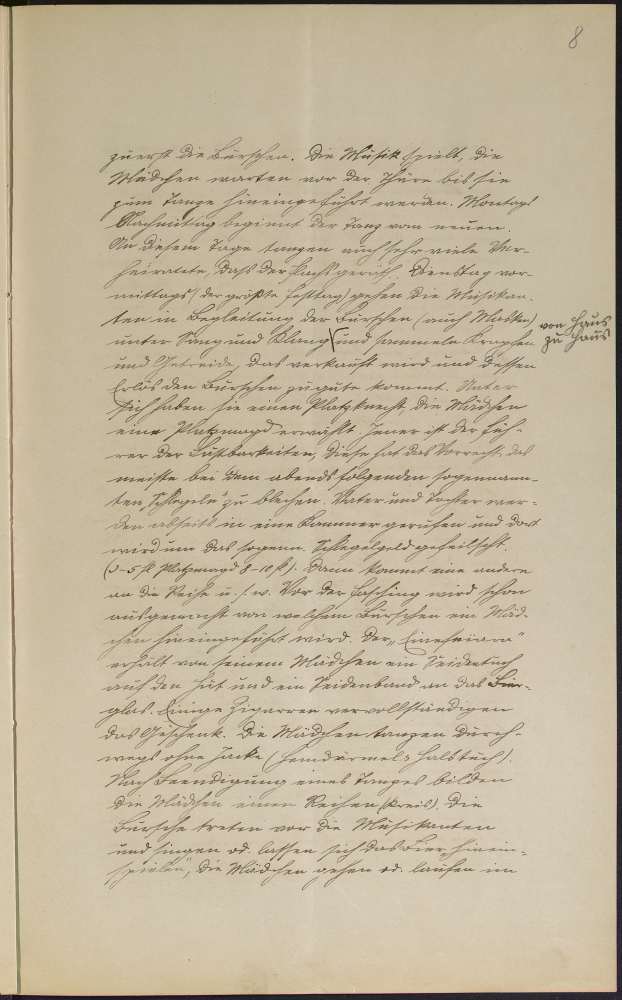 8
zuerst die Burschen. Die Musik spielt, die
Mädchen warten vor der Thüre bis sie
zum Tanze hineingeführt werden. Montags
Nachmittag beginnt der Tanz vom neuen.
An diesem Tage tanzen auch sehr viele Ver-
heiratete, daß der Flachs gerith. Dienstag vor-
mittags (der größte Festtag) gehen die Musikan-
ten in Begleitung der Burschen (auch Masken)
unter Sang und Klang von Haus zu Haus und sammeln Krapfen
und Getreide, das verkauft wird und dessen
Erlös den Burschen zugute kommt. Unter
sich haben sie einen Platzknecht, die Mädchen
eine Platzmagd erwählt. Jener ist der Füh-
rer der Lustbarkeiten, diese hat das Vorrecht, das
meiste bei dem abends folgenden sogenann-
ten „Schlegeln" zu blechen. Vater und Tochter wer-
den abseits in eine Kammer gerufen und dort
wird um das sogenn. Schlegelgeld gefeilscht.
(3-5 fl Platzmagd 8-10 fl). Dann kommt eine andere
an die Reihe u. s. w. Vor der Fasching wird schon
ausgemacht von welchem Burschen ein Mäd-
chen hineingeführt wird. Der
erhält von seinem Mädchen ein Seidentuch
auf den Hut und ein Seidenband an das Bier-
glas. Einige Zigarren vervollständigen
das Geschenk. Die Mädchen tanzen durch-
wegs ohne Jacke (Hemdärmel, Halstuch).
Nach Beendigung eines Tanzes bilden
die Mädchen einen Reihen (Kreis), die
Bursche treten vor die Musikanten
und singen od. lassen sich das Bier „hinein-
spielen", die Mädchen gehen od. laufen im